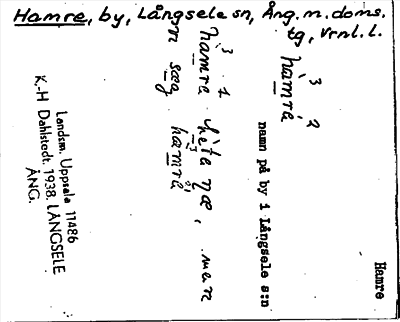 Hamre, by, Långsele sn, Ång. m. doms.
tg, Vrnl. l.
Hamre
namn på by i Långsele s:n
3 2
hamrä
3 1
hamra heta næ, men
n sæg hamrä
Landsm. Uppsala 11486
K.-H Dahlstedt. 1938. LÅNGSELE
ÅNG.